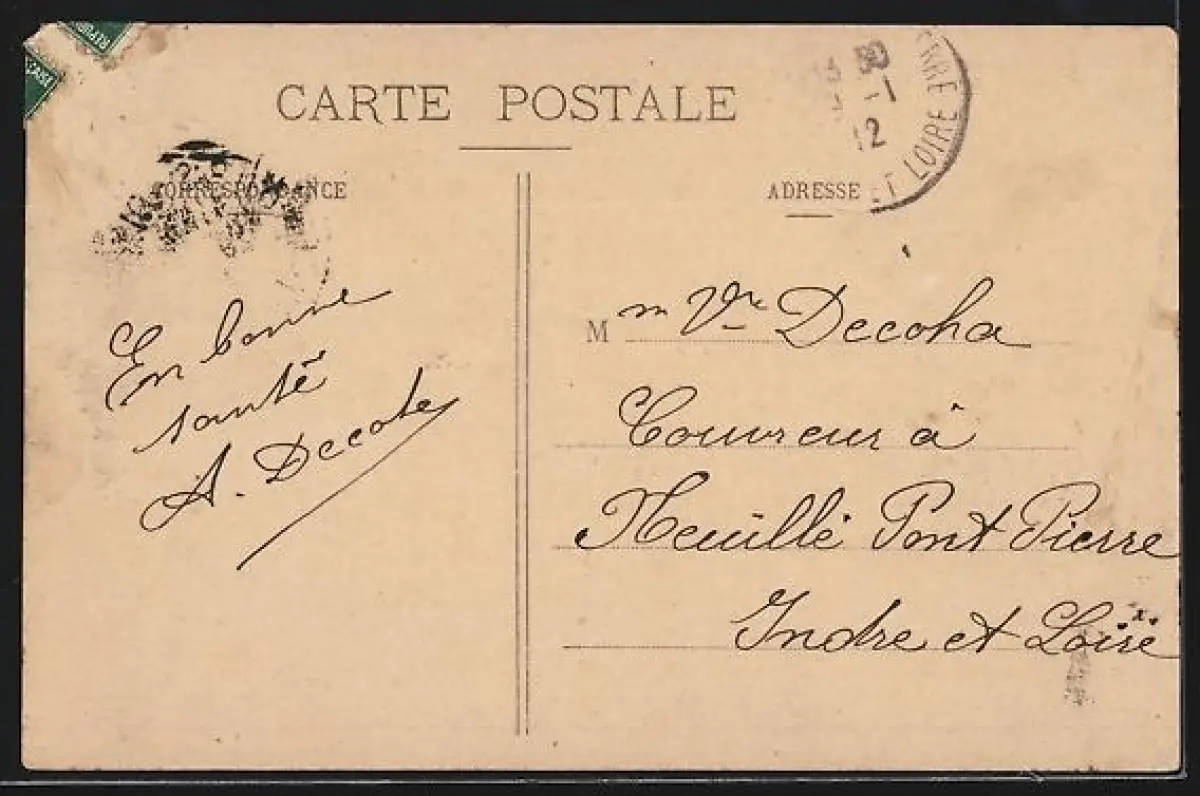 RÉPUB
ÇAISE
CARTE POSTALE
CORRESPONDANCE
ADRESSE
30
-1
12
ERRE
ET LOIRE
En bonne
santé
A. Decohe
M me Vve Decoha
Couvreur à
Neuillé Pont Pierre
Indre et Loire